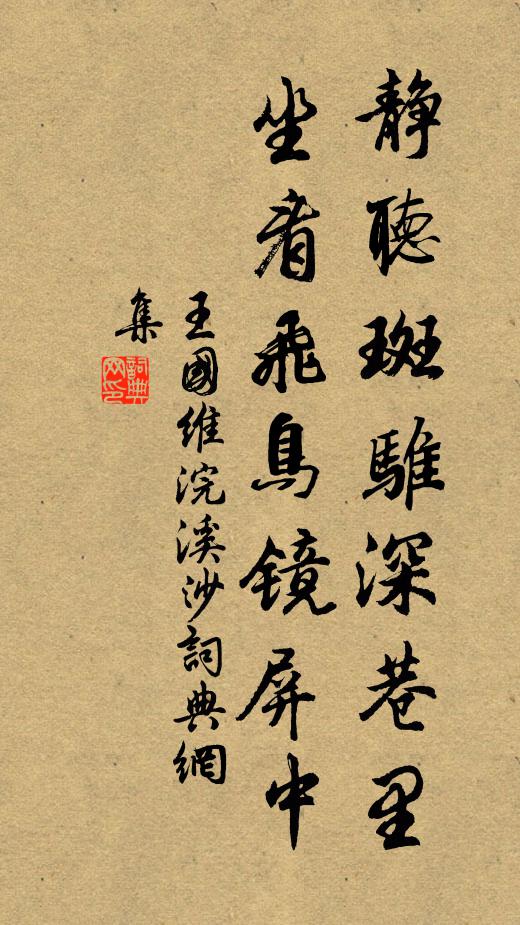 静聽斑騅深巷里
坐看飛鳥镜屏中
王國維浣溪沙詞典網
集
詞典
网印